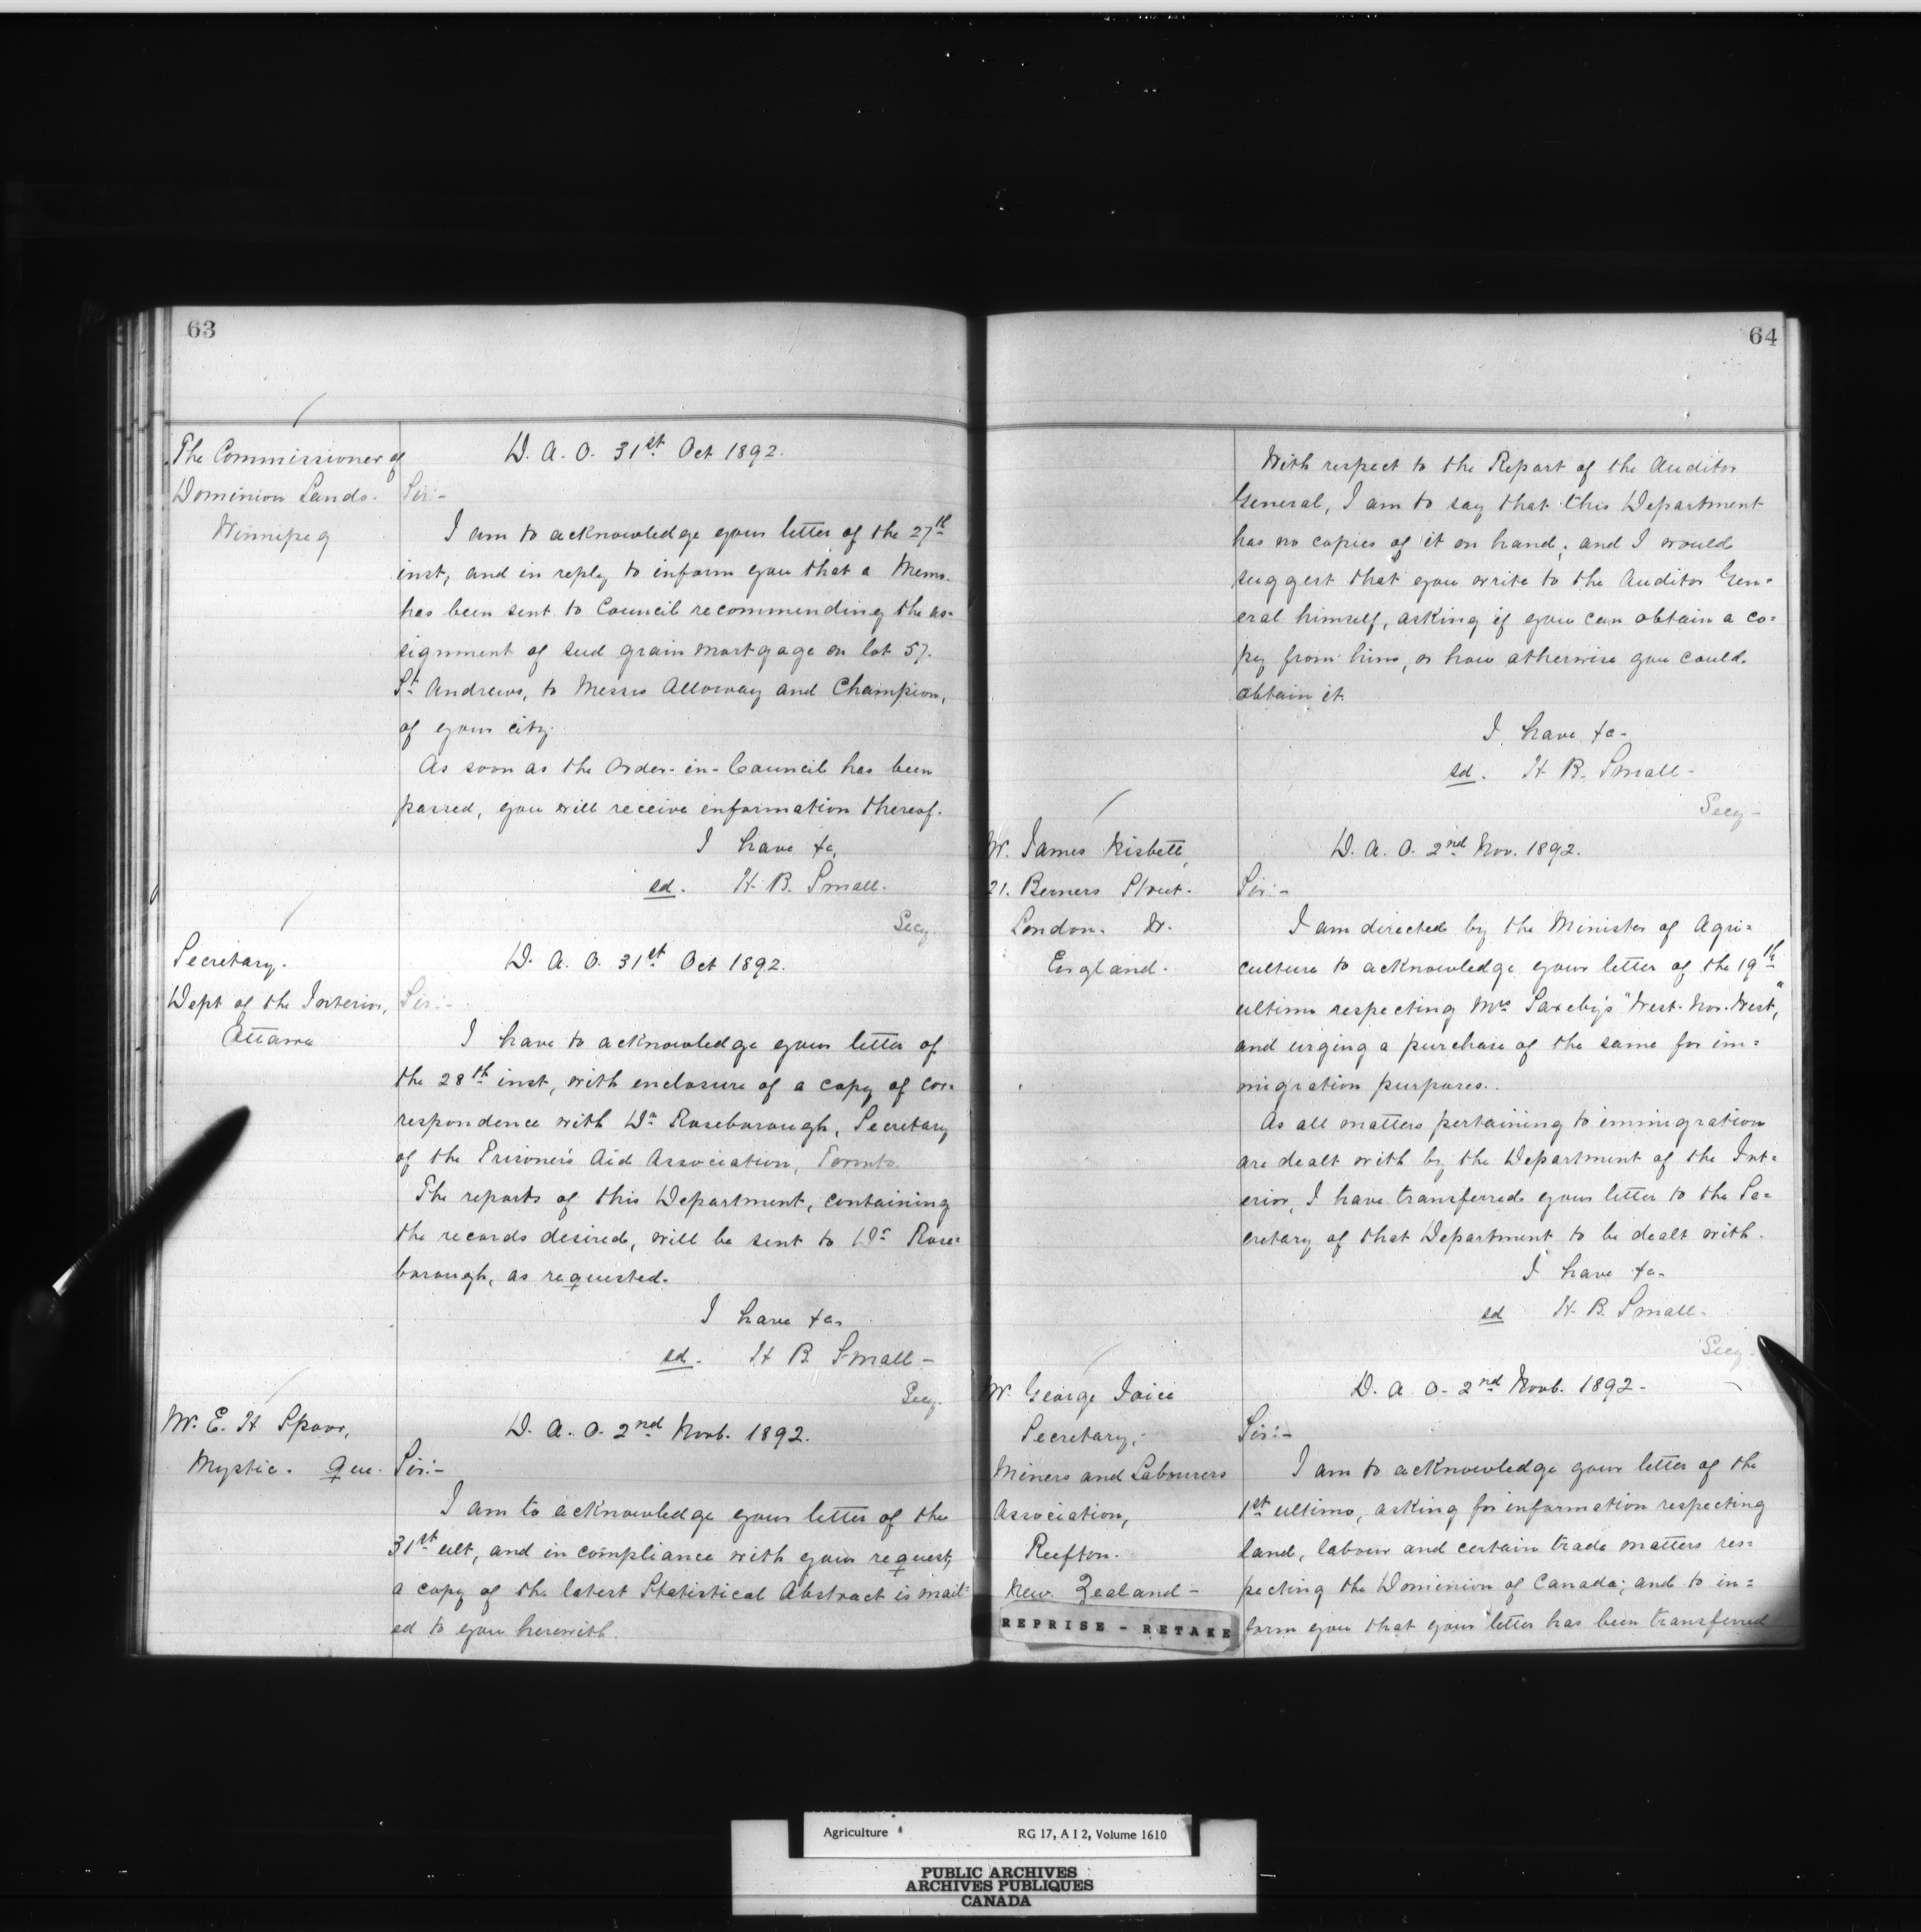 63
The Commissioner of
Dominion Lands.
Winnipeg
D. A. O. 31st Oct 1892.
Sir:-
I am to acknowledge your letter of the 27th
inst, and in reply to inform you that a Memo.
has been sent to Council recommending the as=
signment of seed grain mortgage on lot 57.
St Andrews, to Messrs Alloway and Champion,
of your city.
As soon as the Order-in-Council has been
passed, you will receive information thereof.
I have &c,
sd. H. B. Small.
Secy.
Secretary.
Dept of the Interior,
Ottawa
D. A. O. 31st Oct 1892.
Sir:-
I have to acknowledge your letter of
the 28th inst, with enclosure of a copy of cor=
respondence with Dr Roseborough, Secretary
of the Prisoners Aid Association, Toronto.
The reports of this Department, containing
the records desired, will be sent to Dr Rose=
borough, as requested.
I have &c,
sd. H B. Small -
Secy.
Mr. E. H Spoor,
Mystic. Que.
D. A. O. 2nd Novb. 1892.
Sir:-
I am to acknowledge your letter of the
31st ult, and in compliance with your request,
a copy of the latest Statistical Abstract is mail=
ed to you herewith.
64
With respect to the Report of the Auditor
General, I am to say that this Department
has no copies of it on hand; and I would
suggest that you write to the Auditor Gen=
eral himself, asking if you can obtain a co=
py from him, or how otherwise you could
obtain it.
I have &c-
sd. H B. Small-
Secy-
Mr. James Nisbett,
21. Berners Street.
London. W.
England.
D. A. O. 2nd Nov. 1892.
Sir:-
I am directed by the Minister of Agri=
culture to acknowledge your letter of the 19th
ultimo respecting Mrs Saxeby's "West-Nor-West,"
and urging a purchase of the same for im=
migration purposes.
As all matters pertaining to immigration
are dealt with by the Department of the Int=
erior, I have transferred your letter to the Se=
cretary of that Department to be dealt with.
I have &c-
sd H B. Small.
Secy-
Mr. George Joice
Secretary,
Miners and Labourers
Association,
Reefton.
New Zealand-
D. A. O. 2nd Novb. 1892-
Sir:-
I am to acknowledge your letter of the
1st ultimo, asking for information respecting
land, labour and certain trade matters res=
pecting the Dominion of Canada; and to in=
form you that your letter has been transferred
REPRISE - RETAKE
Agriculture RG 17, A I 2, Volume 1610
PUBLIC ARCHIVES
ARCHIVES PUBLIQUES
CANADA